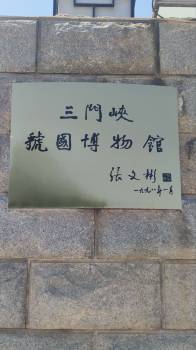 三門峽
虢國博物館
张文彬
一九九八年一月